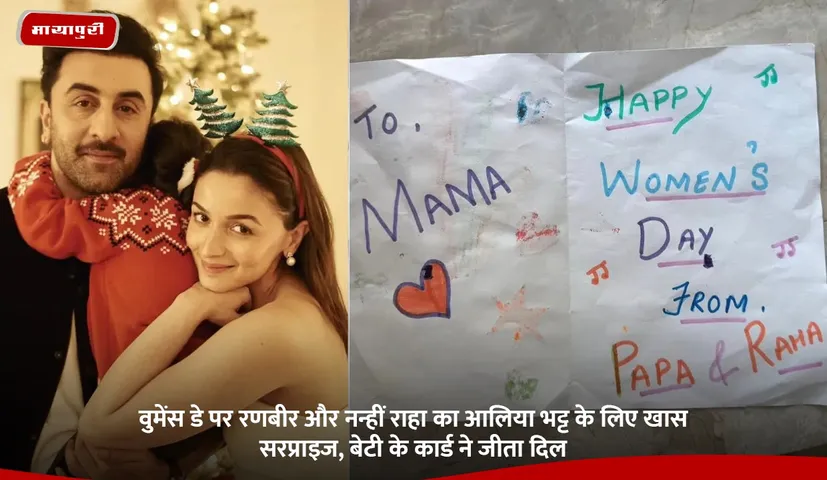 मायापुरी
TO.
MAMA
HAPPY
WOMEN'S
DAY
FROM.
PAPA & RAHA
वुमेंस डे पर रणबीर और नन्हीं राहा का आलिया भट्ट के लिए खास
सरप्राइज, बेटी के कार्ड ने जीता दिल